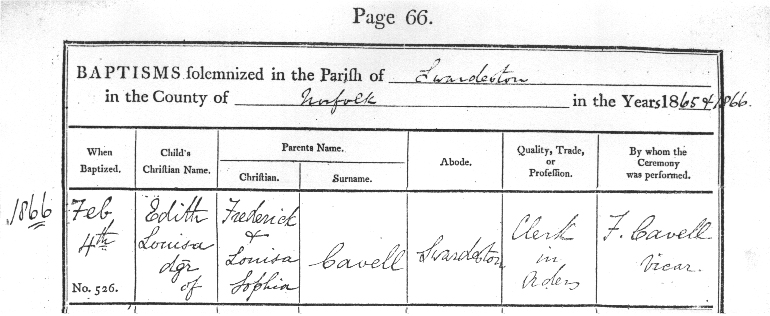 Page 66.
BAPTISMS solemnized in the Parish of Swardeston
in the County of Norfolk in the Years 1865 & 1866.
When Baptized.
Child's Christian Name.
Parents Name.
Christian.
Surname.
Abode.
Quality, Trade, or Profession.
By whom the Ceremony was performed.
1866
Feb
4th
No. 526.
Edith
Louisa
dgr
of
Frederick
&
Louisa
Sophia
Cavell
Swardeston
Clerk
in
Orders
F. Cavell
Vicar.